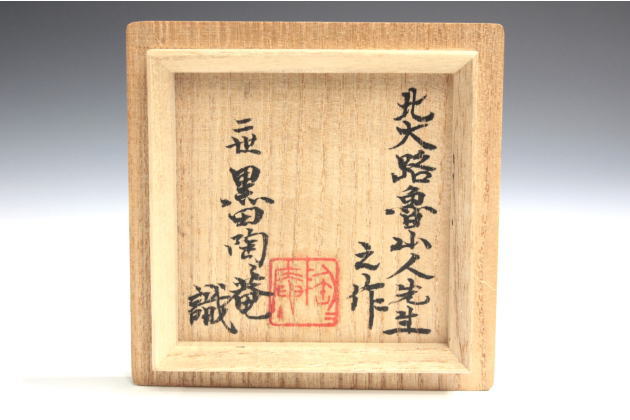 北大路魯山人先生
之作
二世
黒田陶菴
識